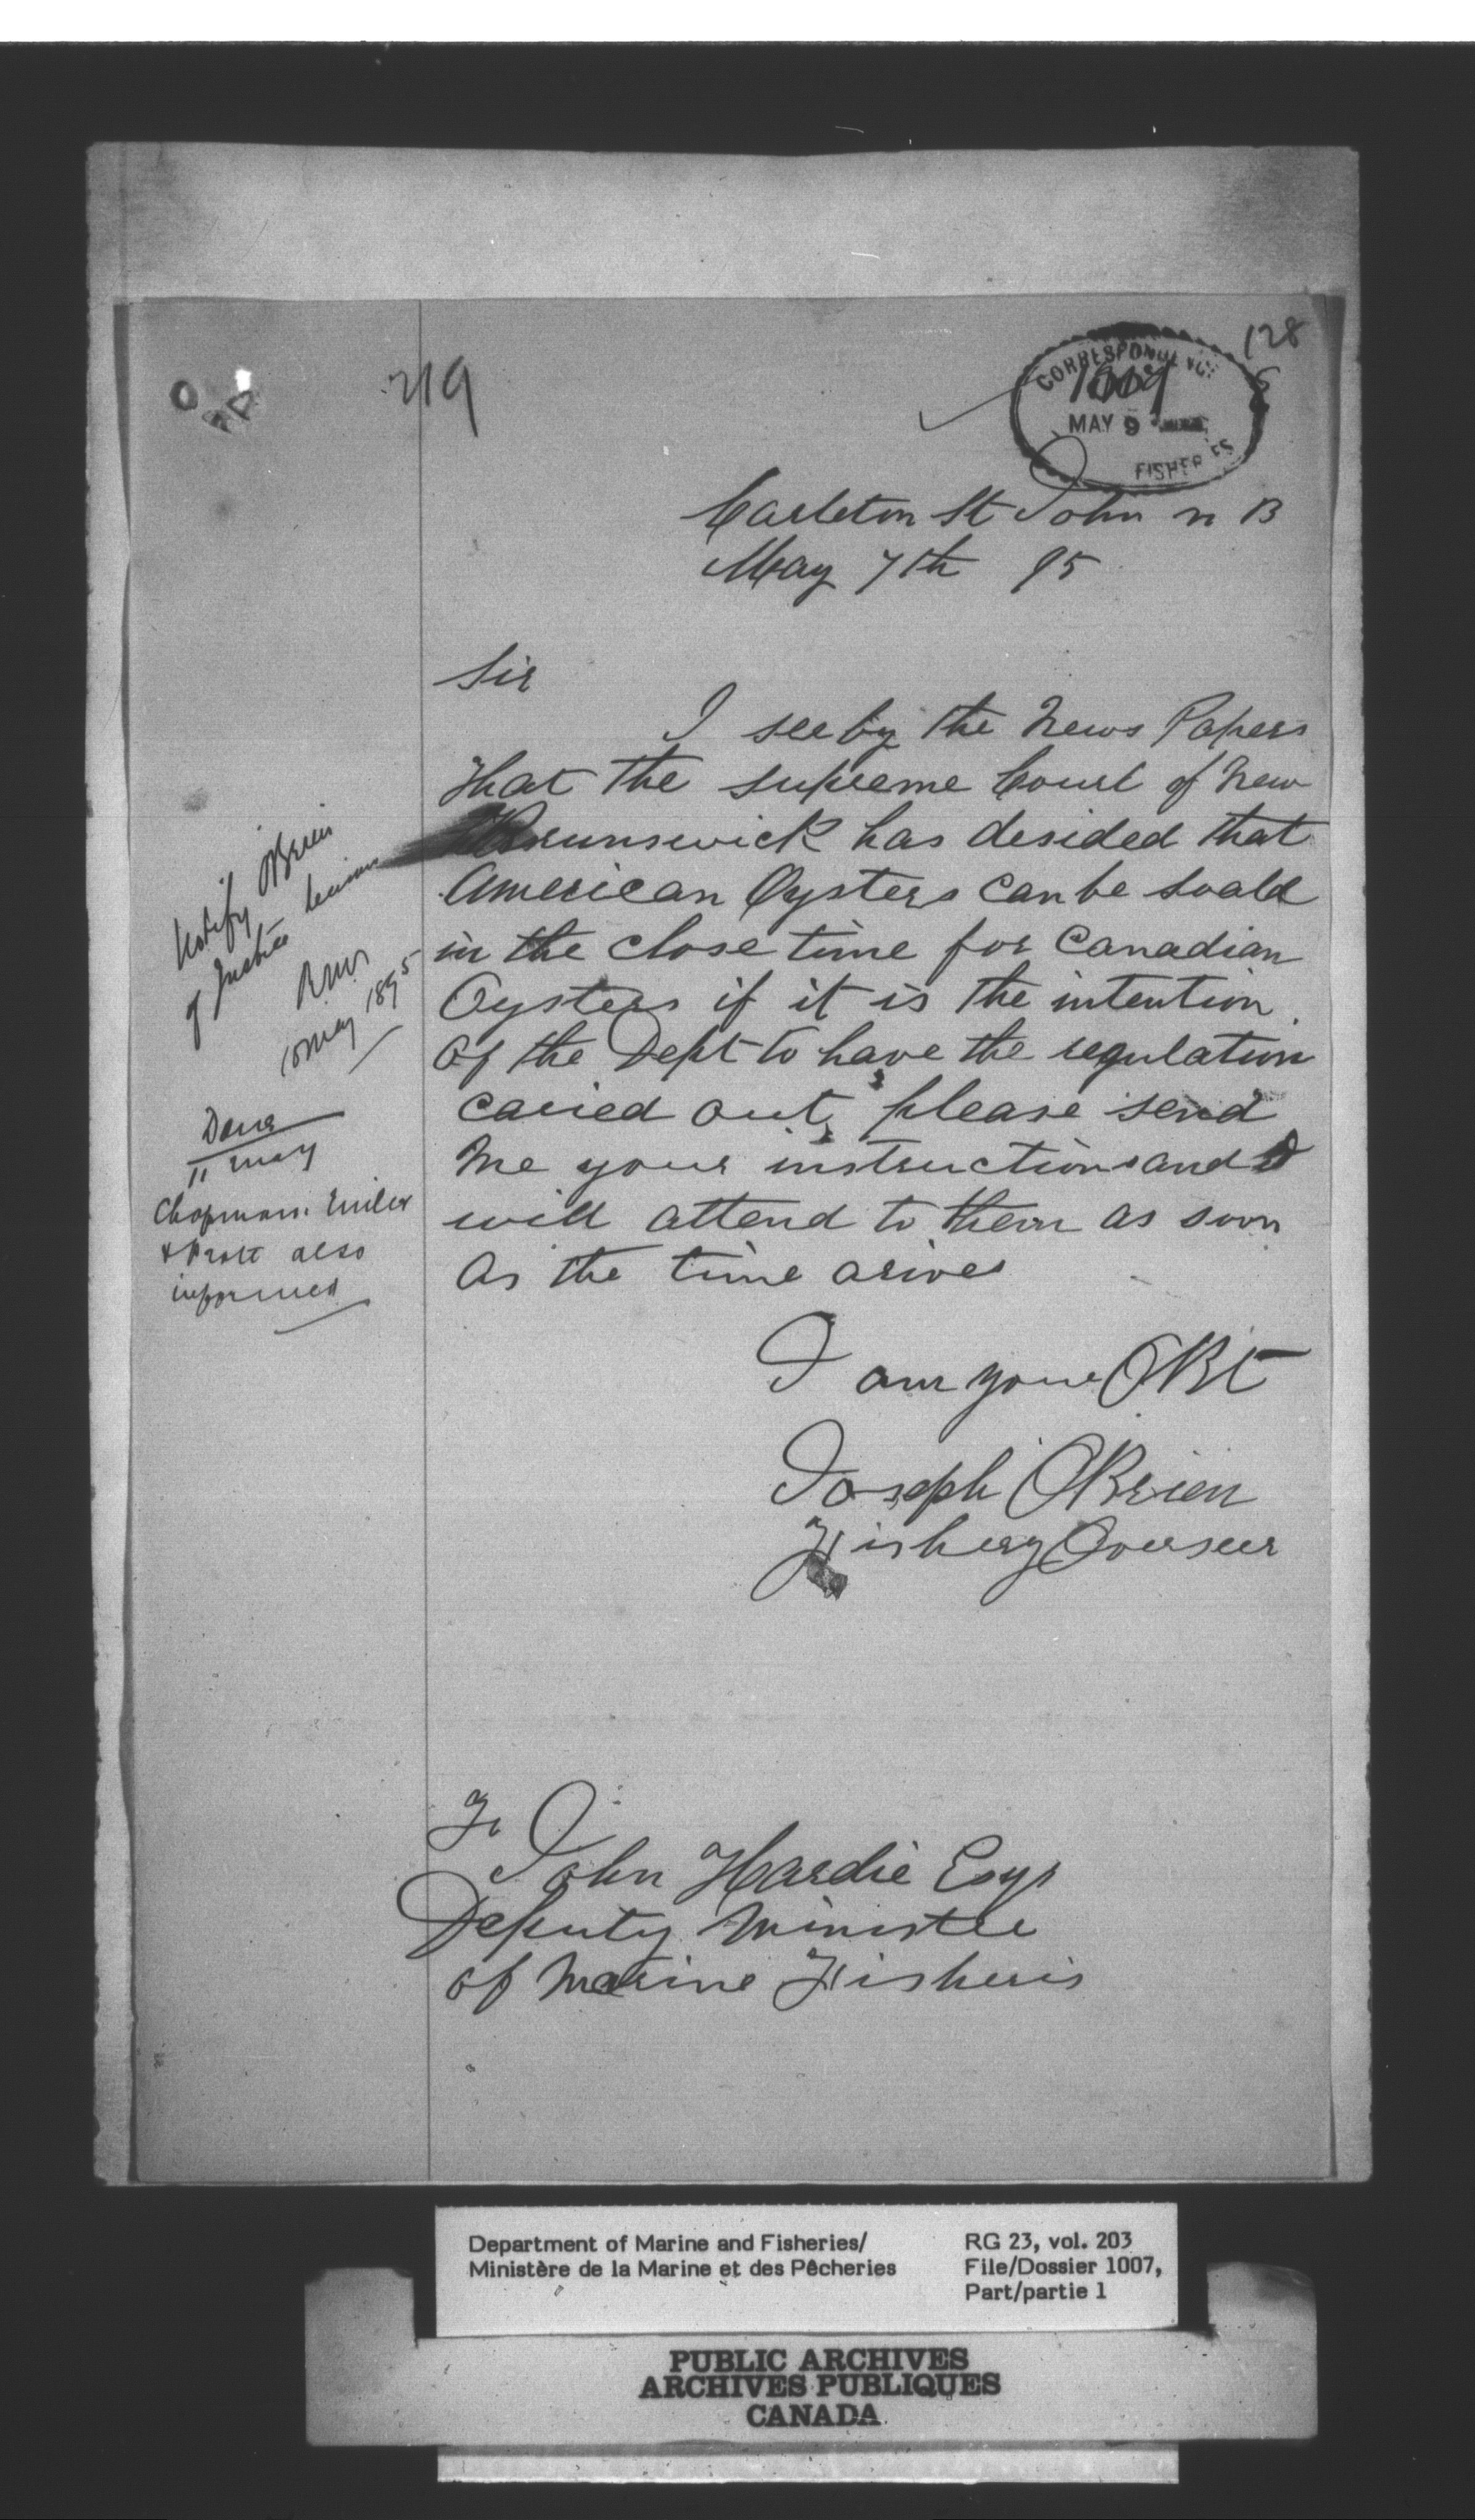 128
219
CORRESPONDENCE
MAY 9
FISHERIES
Carleton St John n B
May 7th 95
Sir
I see by the News Papers
that the supreme Court of New
Brunswick has desided that
American Oysters can be soald
in the close time for Canadian
Oysters if it is the intention
of the Dept to have the regulation
caried out, please send
me your instructions and I
will attend to them as soon
as the time arives
I am your OBt
Joseph OBrien
Fishery Overseer
To
John Hardie Esqr
Deputy Minister
of Marine Fisheris
Notify OBrien
of Justice
10 May 1895
Done
11 May
Chapman
also
informed
Department of Marine and Fisheries/
Ministère de la Marine et des Pêcheries
RG 23, vol. 203
File/Dossier 1007,
Part/partie 1
PUBLIC ARCHIVES
ARCHIVES PUBLIQUES
CANADA